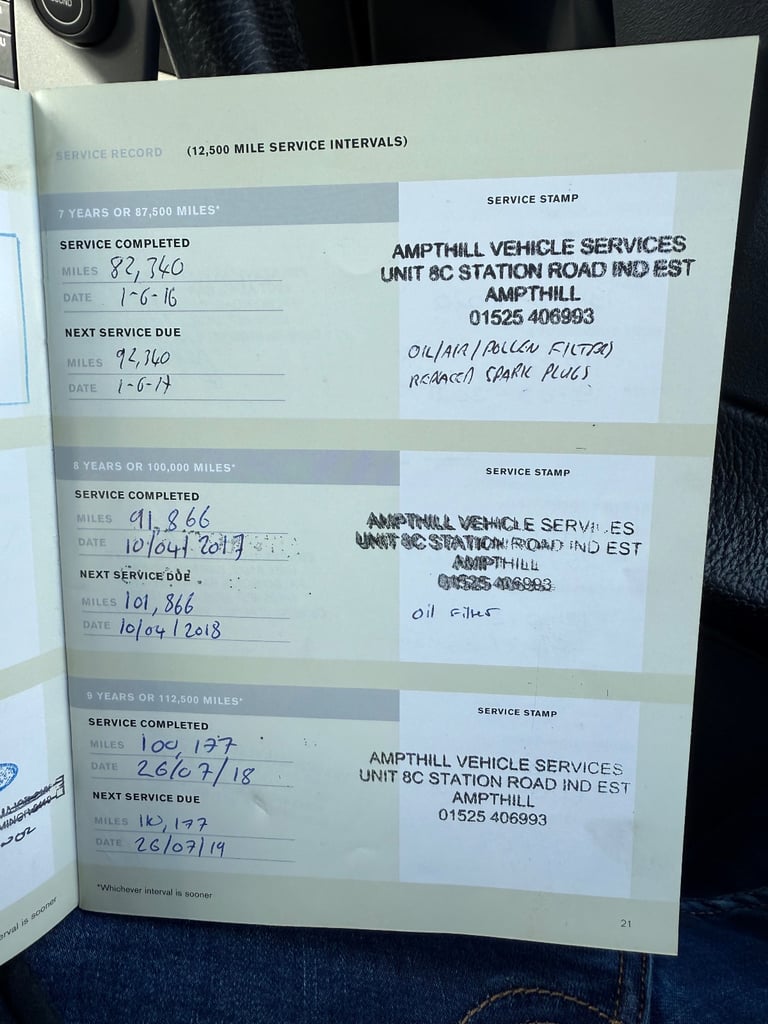 SERVICE RECORD (12,500 MILE SERVICE INTERVALS)
7 YEARS OR 87,500 MILES*
SERVICE COMPLETED
MILES 82,340
DATE 1-6-16
NEXT SERVICE DUE
MILES 92,340
DATE 1-6-17
SERVICE STAMP
AMPTHILL VEHICLE SERVICES
UNIT 8C STATION ROAD IND EST
AMPTHILL
01525 406993
OIL/AIR/POLLEN FILTERS
REPLACED SPARK PLUGS
8 YEARS OR 100,000 MILES*
SERVICE COMPLETED
MILES 91,866
DATE 10/04/2017
NEXT SERVICE DUE
MILES 101,866
DATE 10/04/2018
SERVICE STAMP
AMPTHILL VEHICLE SERVICES
UNIT 8C STATION ROAD IND EST
AMPTHILL
01525 406993
Oil Filter
9 YEARS OR 112,500 MILES*
SERVICE COMPLETED
MILES 100,177
DATE 26/07/18
NEXT SERVICE DUE
MILES 110,177
DATE 26/07/19
SERVICE STAMP
AMPTHILL VEHICLE SERVICES
UNIT 8C STATION ROAD IND EST
AMPTHILL
01525 406993
*Whichever interval is sooner
21
erval is sooner